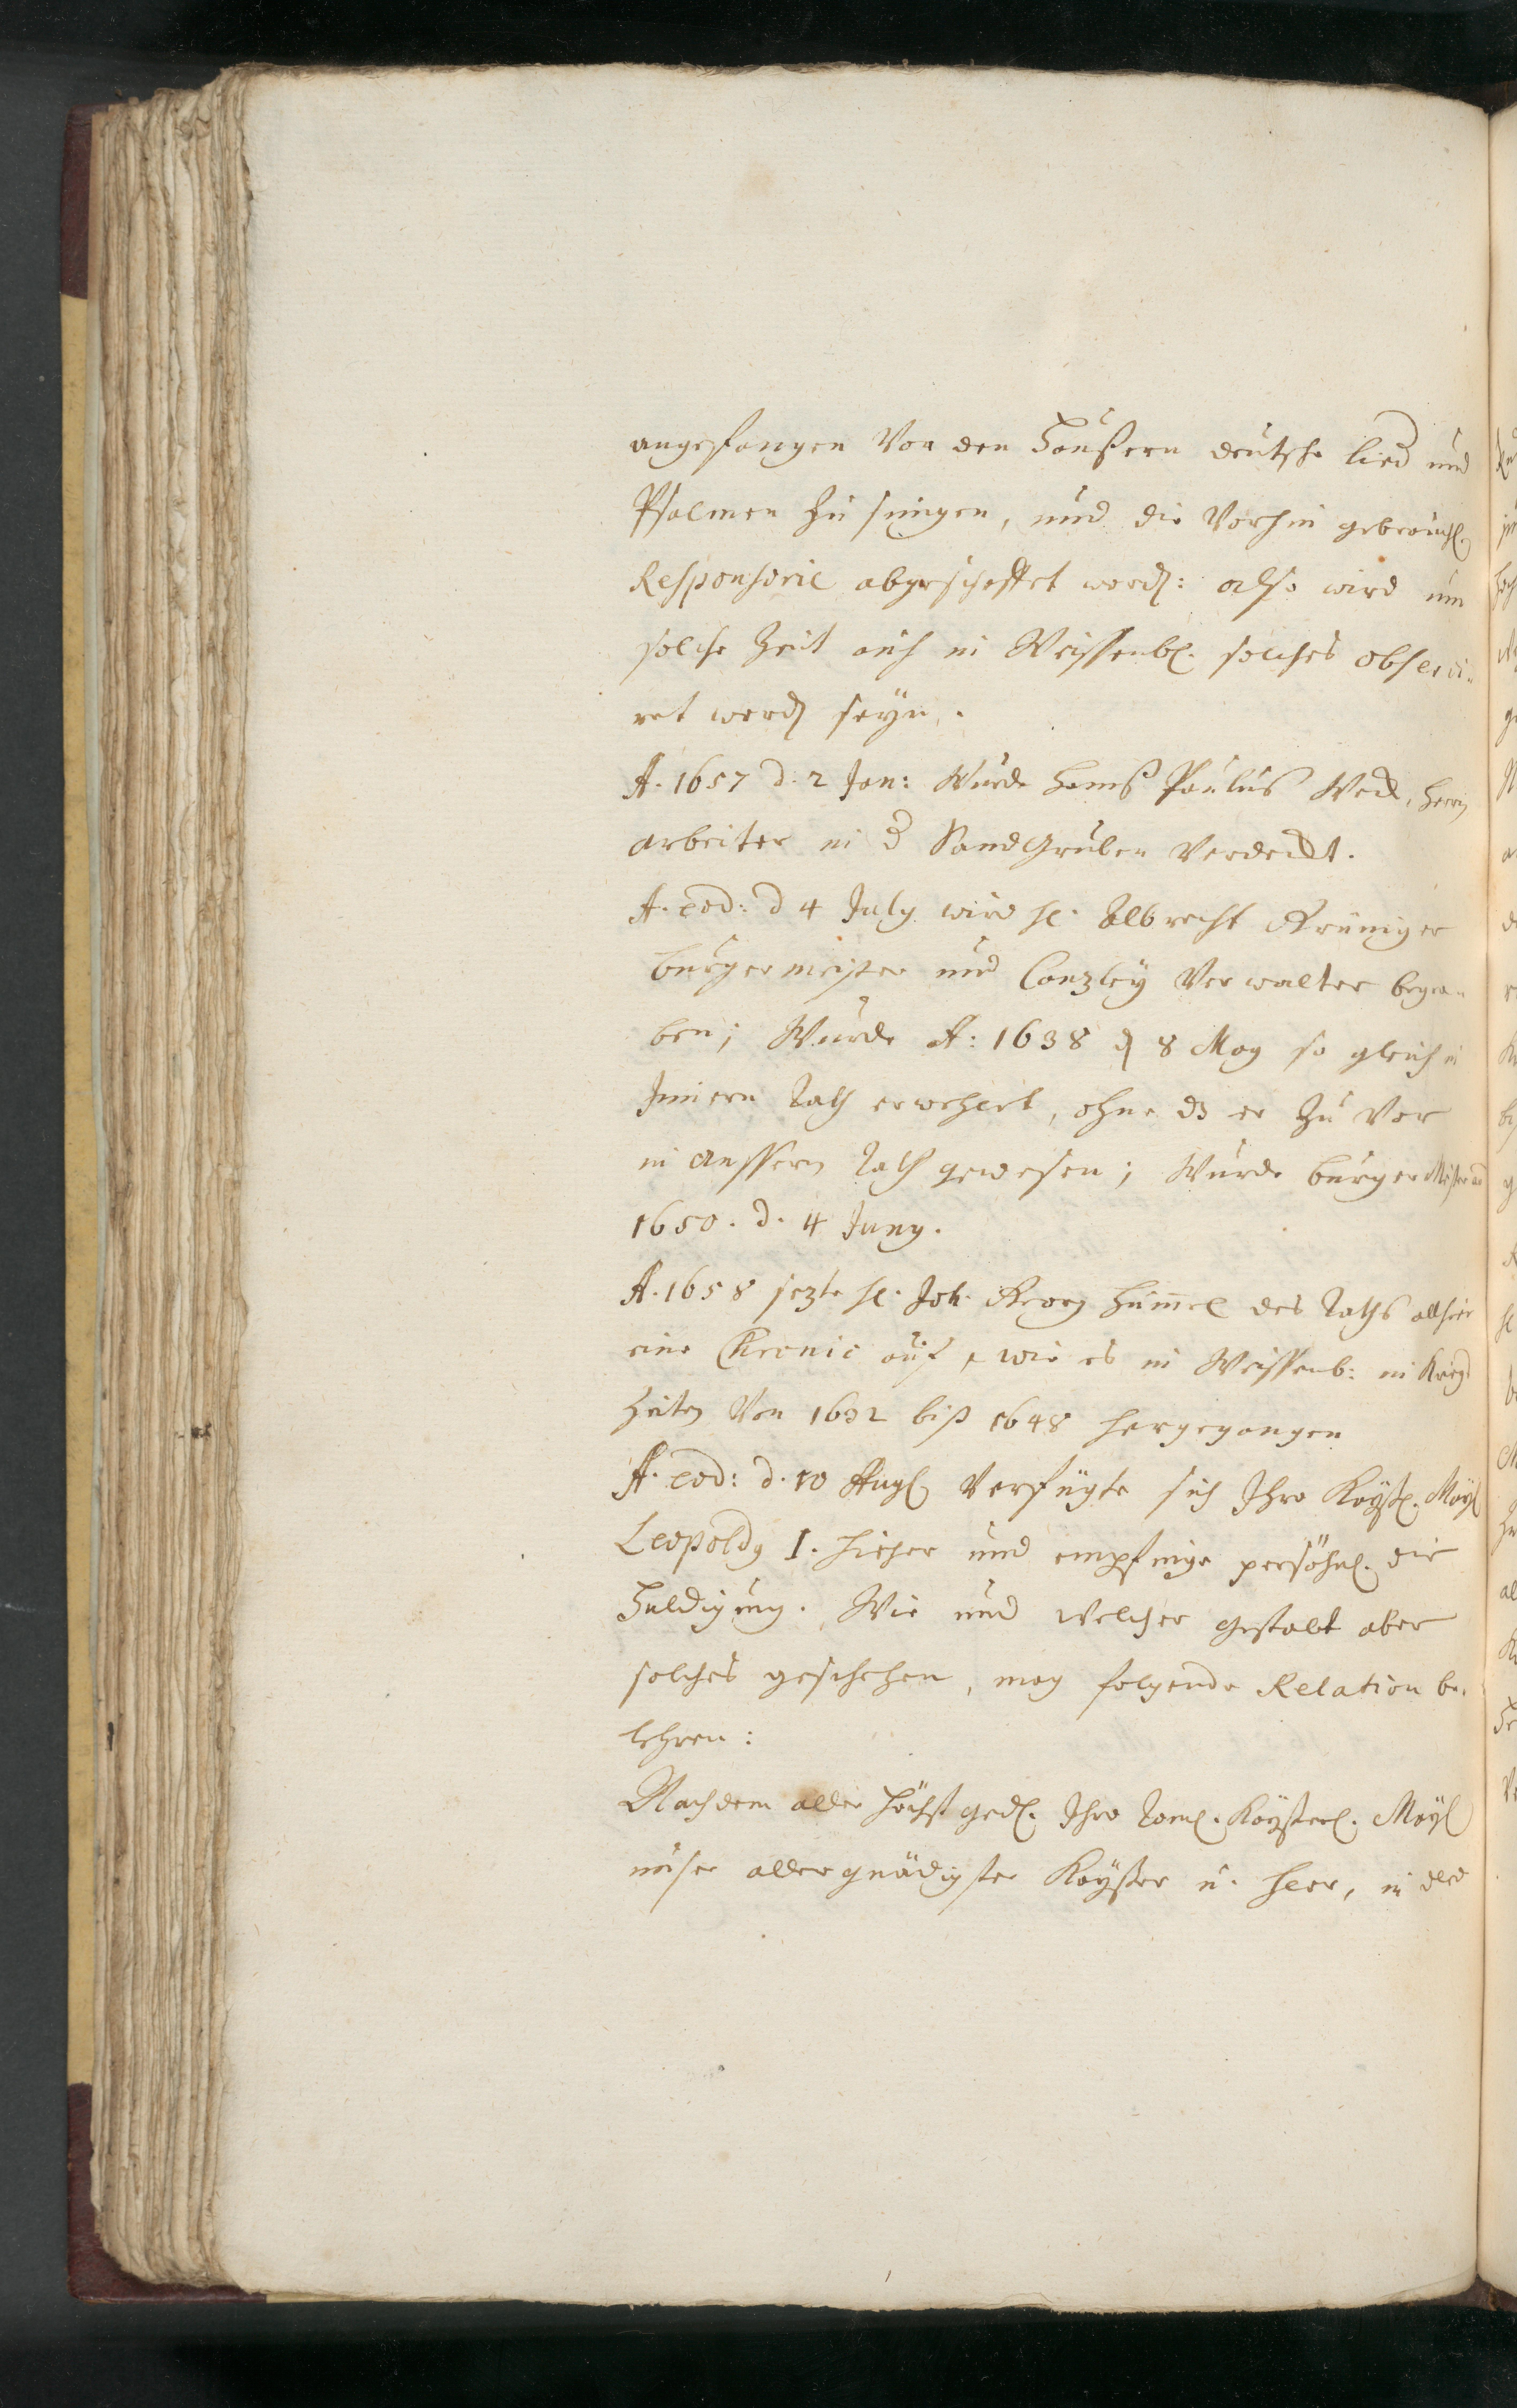 angefangen Von den Häußern deutsche lied und
Psalmen zu singen, und die Vorhin gebräuchl.
Responsorie abgeschaffet word: also wird um
solche Zeit auch in Weissenb. solches observi-
ret word seyn.
A. 1657 d. 2 Jan: Wurde Hanß Paulus Weck,
arbeiter in d Sand Gruben Verdeckt.
A. eod: d 4 July wird H. Albrecht Grüniger
burgermeister und Canzley Verwalter begra-
ben; Wurde A: 1638 d 8 May so gleich in
Innern Rath erwehlet, ohne dz er Zu Vor
in aussern Rath gewesen; Wurde burger Meister
1650. d. 4 Juny.
A. 1658 sezte H. Joh. Georg Hum̄el des Raths allhier
eine Chronic auf, wie es in Weissenb: in Kriegs
Zeiten Von 1632 biß 1648 hergegangen
A. eod: d. 10 Aug Verfügte sich Ihro Kayßl. May
Leopoldg I. hieher und empfinge persöhnl. die
Huldigung. Wie und welcher gestalt aber
solches geschehen, mag folgende Relation be-
lehren:
Nachdem aller höchst ged. Ihro Röml. Kayßerl. May
unser allergnädigster Kayßer u. Herr, in der